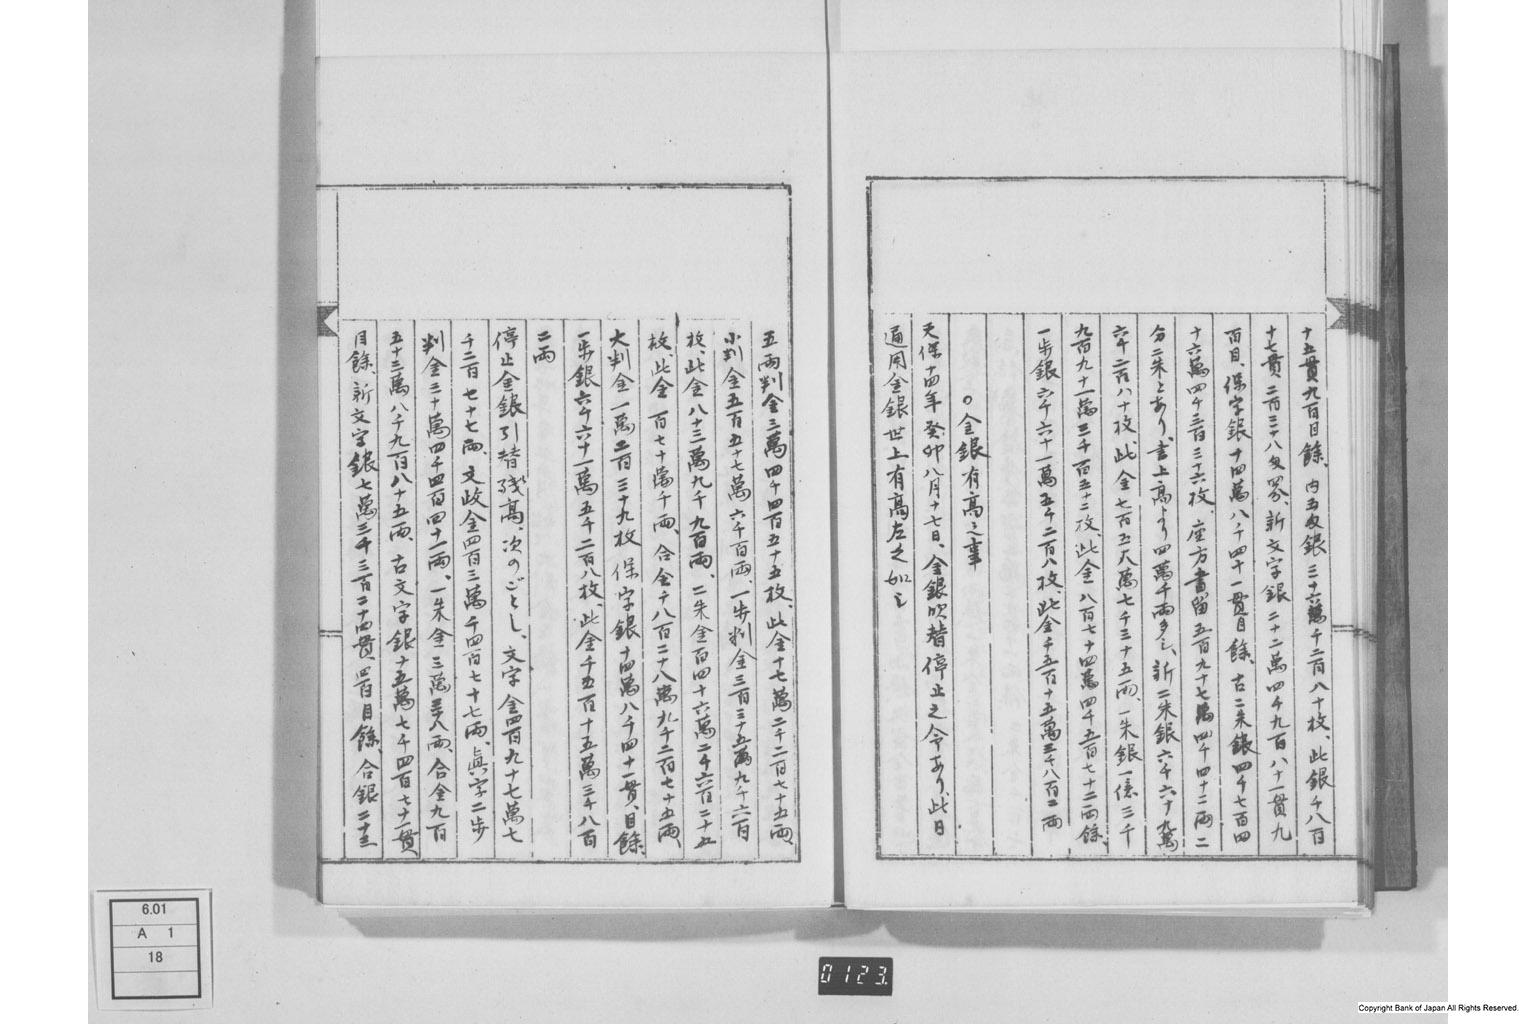 十五貫九百目餘、内五匁銀三十六萬千二百八十枚、此銀千八百
十七貫二百三十八匁四分、新文字銀二十二萬四千九百八十一貫九
百目、保字銀十四萬八千四十一貫目餘、古二朱銀四千七百四
十六萬四千三百三十六枚、座方書留五百九十七萬四千四十二兩二
分二朱とあり、書上高より四萬千兩多し、新二朱銀六千六十九萬
六千二百八十枚、此金七百五十八萬七千三十五兩、一朱銀一億三千
九百九十一萬三千百五十二枚、此金八百七十四萬四千五百七十二兩餘、
一歩銀六千六十一萬五千二百八枚、此金千五百十五萬三千八百二兩
〇金銀有高之事
天保十四年癸卯八月十七日、金銀吹替停止之令あり、此日
通用金銀世上有高左之如し
五兩判金三萬四千四百五十五枚、此金十七萬二千二百七十五兩、
小判金五百五十七萬六千百兩、一歩判金三百三十五萬九千六百
枚、此金八十三萬九千九百兩、二朱金百四十六萬二千六百二十五
枚、此金百七十萬千兩、合金千八百二十八萬九千二百七十五兩、
大判金一萬二百三十九枚保字銀十四萬八千四十一貫目餘、
一歩銀六千六十一萬五千二百八枚、此金千五百十五萬三千八百
二兩
停止金銀引替殘高、次のごとし、文字金四百九十七萬七
千二百七十七兩、文政金四百三萬千四百七十七兩、眞字二歩
判金二十萬四千四百四十一兩、一朱金三萬八兩、合金九百
五十三萬八千九百八十五兩、古文字銀十五萬七千四百七十一貫
目餘、新文字銀七萬三千三百二十四貫四百目餘、合銀二十三
6.01
A 1
18
0123
Copyright Bank of Japan All Rights Reserved.